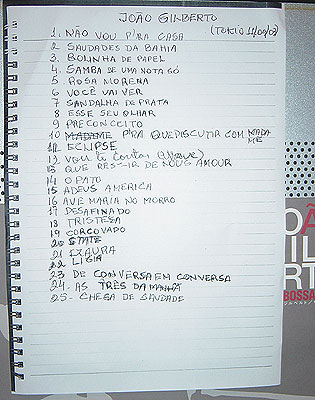 JOAO GILBERTO
(TOKIO 11/09/03)
1. NÃO VOU P'RA CASA
2 SAUDADES DA BAHIA
3. BOLINHA DE PAPEL
4. SAMBA DE UMA NOTA SÓ
5 ROSA MORENA
6 VOCÊ VAI VER
7 SANDALHA DE PRATA
8 ESSE SEU OLHAR
9 PRECONCEITO
10 MADAME P'RA QUE DISCUTIR COM MADAME
12 ECLIPSE
13 VOU TE CONTAR (Wave)
13 QUE RESTE DE NOUS AMOUR
14 O PATO
15 ADEUS AMERICA
16 AVE MARIA NO MORRO
17 DESAFINADO
18 TRISTEZA
19 CORCOVADO
20 STATE
21 IZAURA
22 LIGIA
23 DE CONVERSA EM CONVERSA
24- AS TRÊS DA MANHÃ
25- CHEGA DE SAUDADE
OÃ
IL
RT
BOSSA